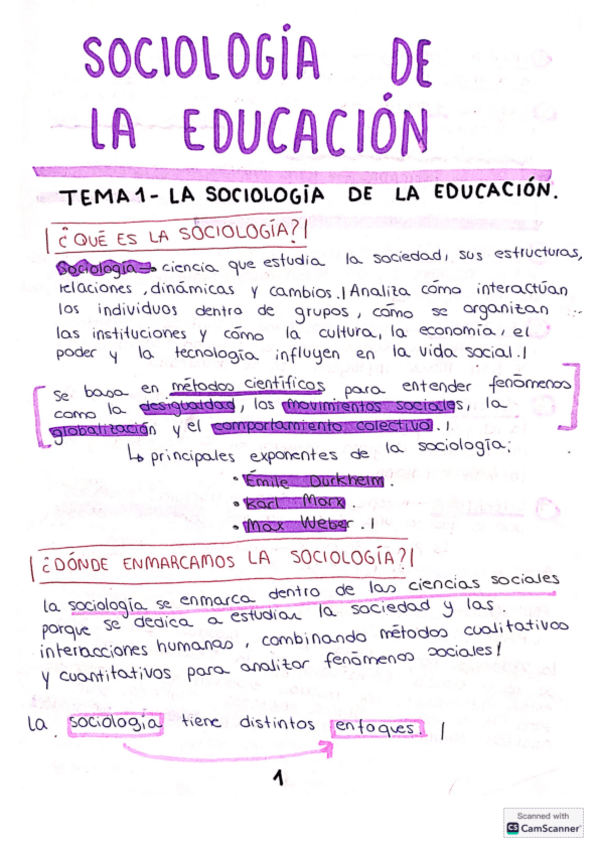 SOCIOLOGÍA DE
LA EDUCACIÓN
TEMA 1 - LA SOCIOLOGÍA DE LA EDUCACIÓN.
¿QUÉ ES LA SOCIOLOGÍA?
Sociología → ciencia que estudia la sociedad, sus estructuras,
relaciones, dinámicas y cambios. Analiza cómo interactúan
los individuos dentro de grupos, cómo se organizan
las instituciones y cómo la cultura, la economía, el
poder y la tecnología influyen en la vida social.
Se basa en métodos científicos para entender fenómenos
como la desigualdad, los movimientos sociales, la
globalización y el comportamiento colectivo.
↳ principales exponentes de la sociología:
• Émile Durkheim.
• Karl Marx.
• Max Weber.
¿DÓNDE ENMARCAMOS LA SOCIOLOGÍA?
la sociología se enmarca dentro de las ciencias sociales
porque se dedica a estudiar la sociedad y las
interacciones humanas, combinando métodos cualitativos
y cuantitativos para analizar fenómenos sociales
La sociología tiene distintos enfoques.
1
Scanned with
CS CamScanner